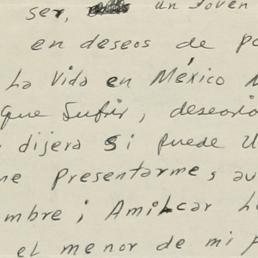 ser, un Joven
en deseos de
La Vida en México
que Sufrir, deseoso
dijera si puede
me Presentarme, au
mbre; Amilcar
el menor de mi